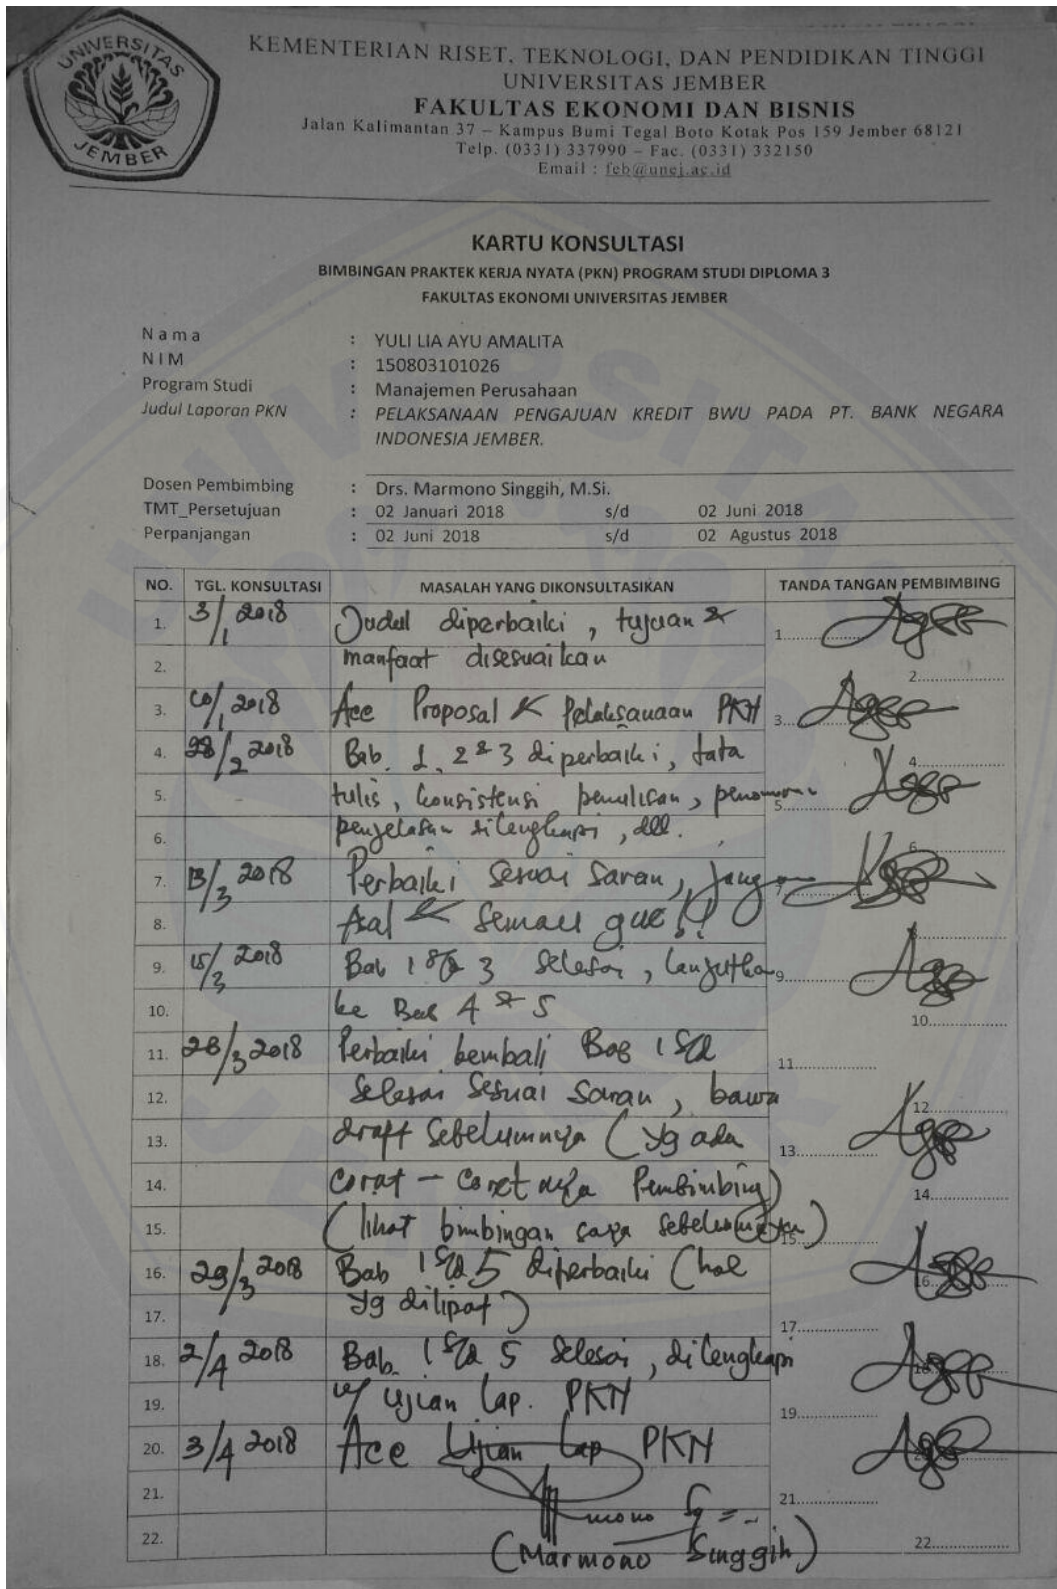 UNIVERSITAS
JEMBER
KEMENTERIAN RISET, TEKNOLOGI, DAN PENDIDIKAN TINGGI
UNIVERSITAS JEMBER
FAKULTAS EKONOMI DAN BISNIS
Jalan Kalimantan 37 – Kampus Bumi Tegal Boto Kotak Pos 159 Jember 68121
Telp. (0331) 337990 – Fac. (0331) 332150
Email : feb@unej.ac.id
KARTU KONSULTASI
BIMBINGAN PRAKTEK KERJA NYATA (PKN) PROGRAM STUDI DIPLOMA 3
FAKULTAS EKONOMI UNIVERSITAS JEMBER
Nama : YULI LIA AYU AMALITA
NIM : 150803101026
Program Studi : Manajemen Perusahaan
Judul Laporan PKN : PELAKSANAAN PENGAJUAN KREDIT BWU PADA PT. BANK NEGARA
INDONESIA JEMBER.
Dosen Pembimbing : Drs. Marmono Singgih, M.Si.
TMT_Persetujuan : 02 Januari 2018 s/d 02 Juni 2018
Perpanjangan : 02 Juni 2018 s/d 02 Agustus 2018
NO. TGL. KONSULTASI MASALAH YANG DIKONSULTASIKAN TANDA TANGAN PEMBIMBING
1. 3/1 2018 Judul diperbaiki, tujuan & 1..........
2. manfaat disesuaikan 2..........
3. /1 2018 Acc Proposal & Pelaksanaan PKN 3..........
4. 28/2 2018 Bab. 1, 2 & 3 diperbaiki, tata 4..........
5. tulis, konsistensi penulisan, 5..........
6. penjelasan dilengkapi, dll. 6..........
7. 13/3 2018 Perbaiki sesuai saran, jangan 7..........
8. Asal & semau gue!! 8..........
9. 15/3 2018 Bab 1 s/d 3 selesai, lanjutkan 9..........
10. ke Bab 4 & 5 10..........
11. 28/3 2018 Perbaiki kembali Bab 1 s/d 11..........
12. selesai sesuai saran, bawa 12..........
13. draft sebelumnya (yg ada 13..........
14. corat - coretnya Pembimbing) 14..........
15. (lihat bimbingan saya sebelumnya) 15..........
16. 29/3 2018 Bab 1 s/d 5 diperbaiki (hal 16..........
17. yg dilipat) 17..........
18. 2/4 2018 Bab. 1 s/d 5 selesai, dilengkapi 18..........
19. u/ ujian Lap. PKN 19..........
20. 3/4 2018 Acc Ujian Lap PKN 20..........
21. 21..........
22. (Marmono Singgih) 22..........